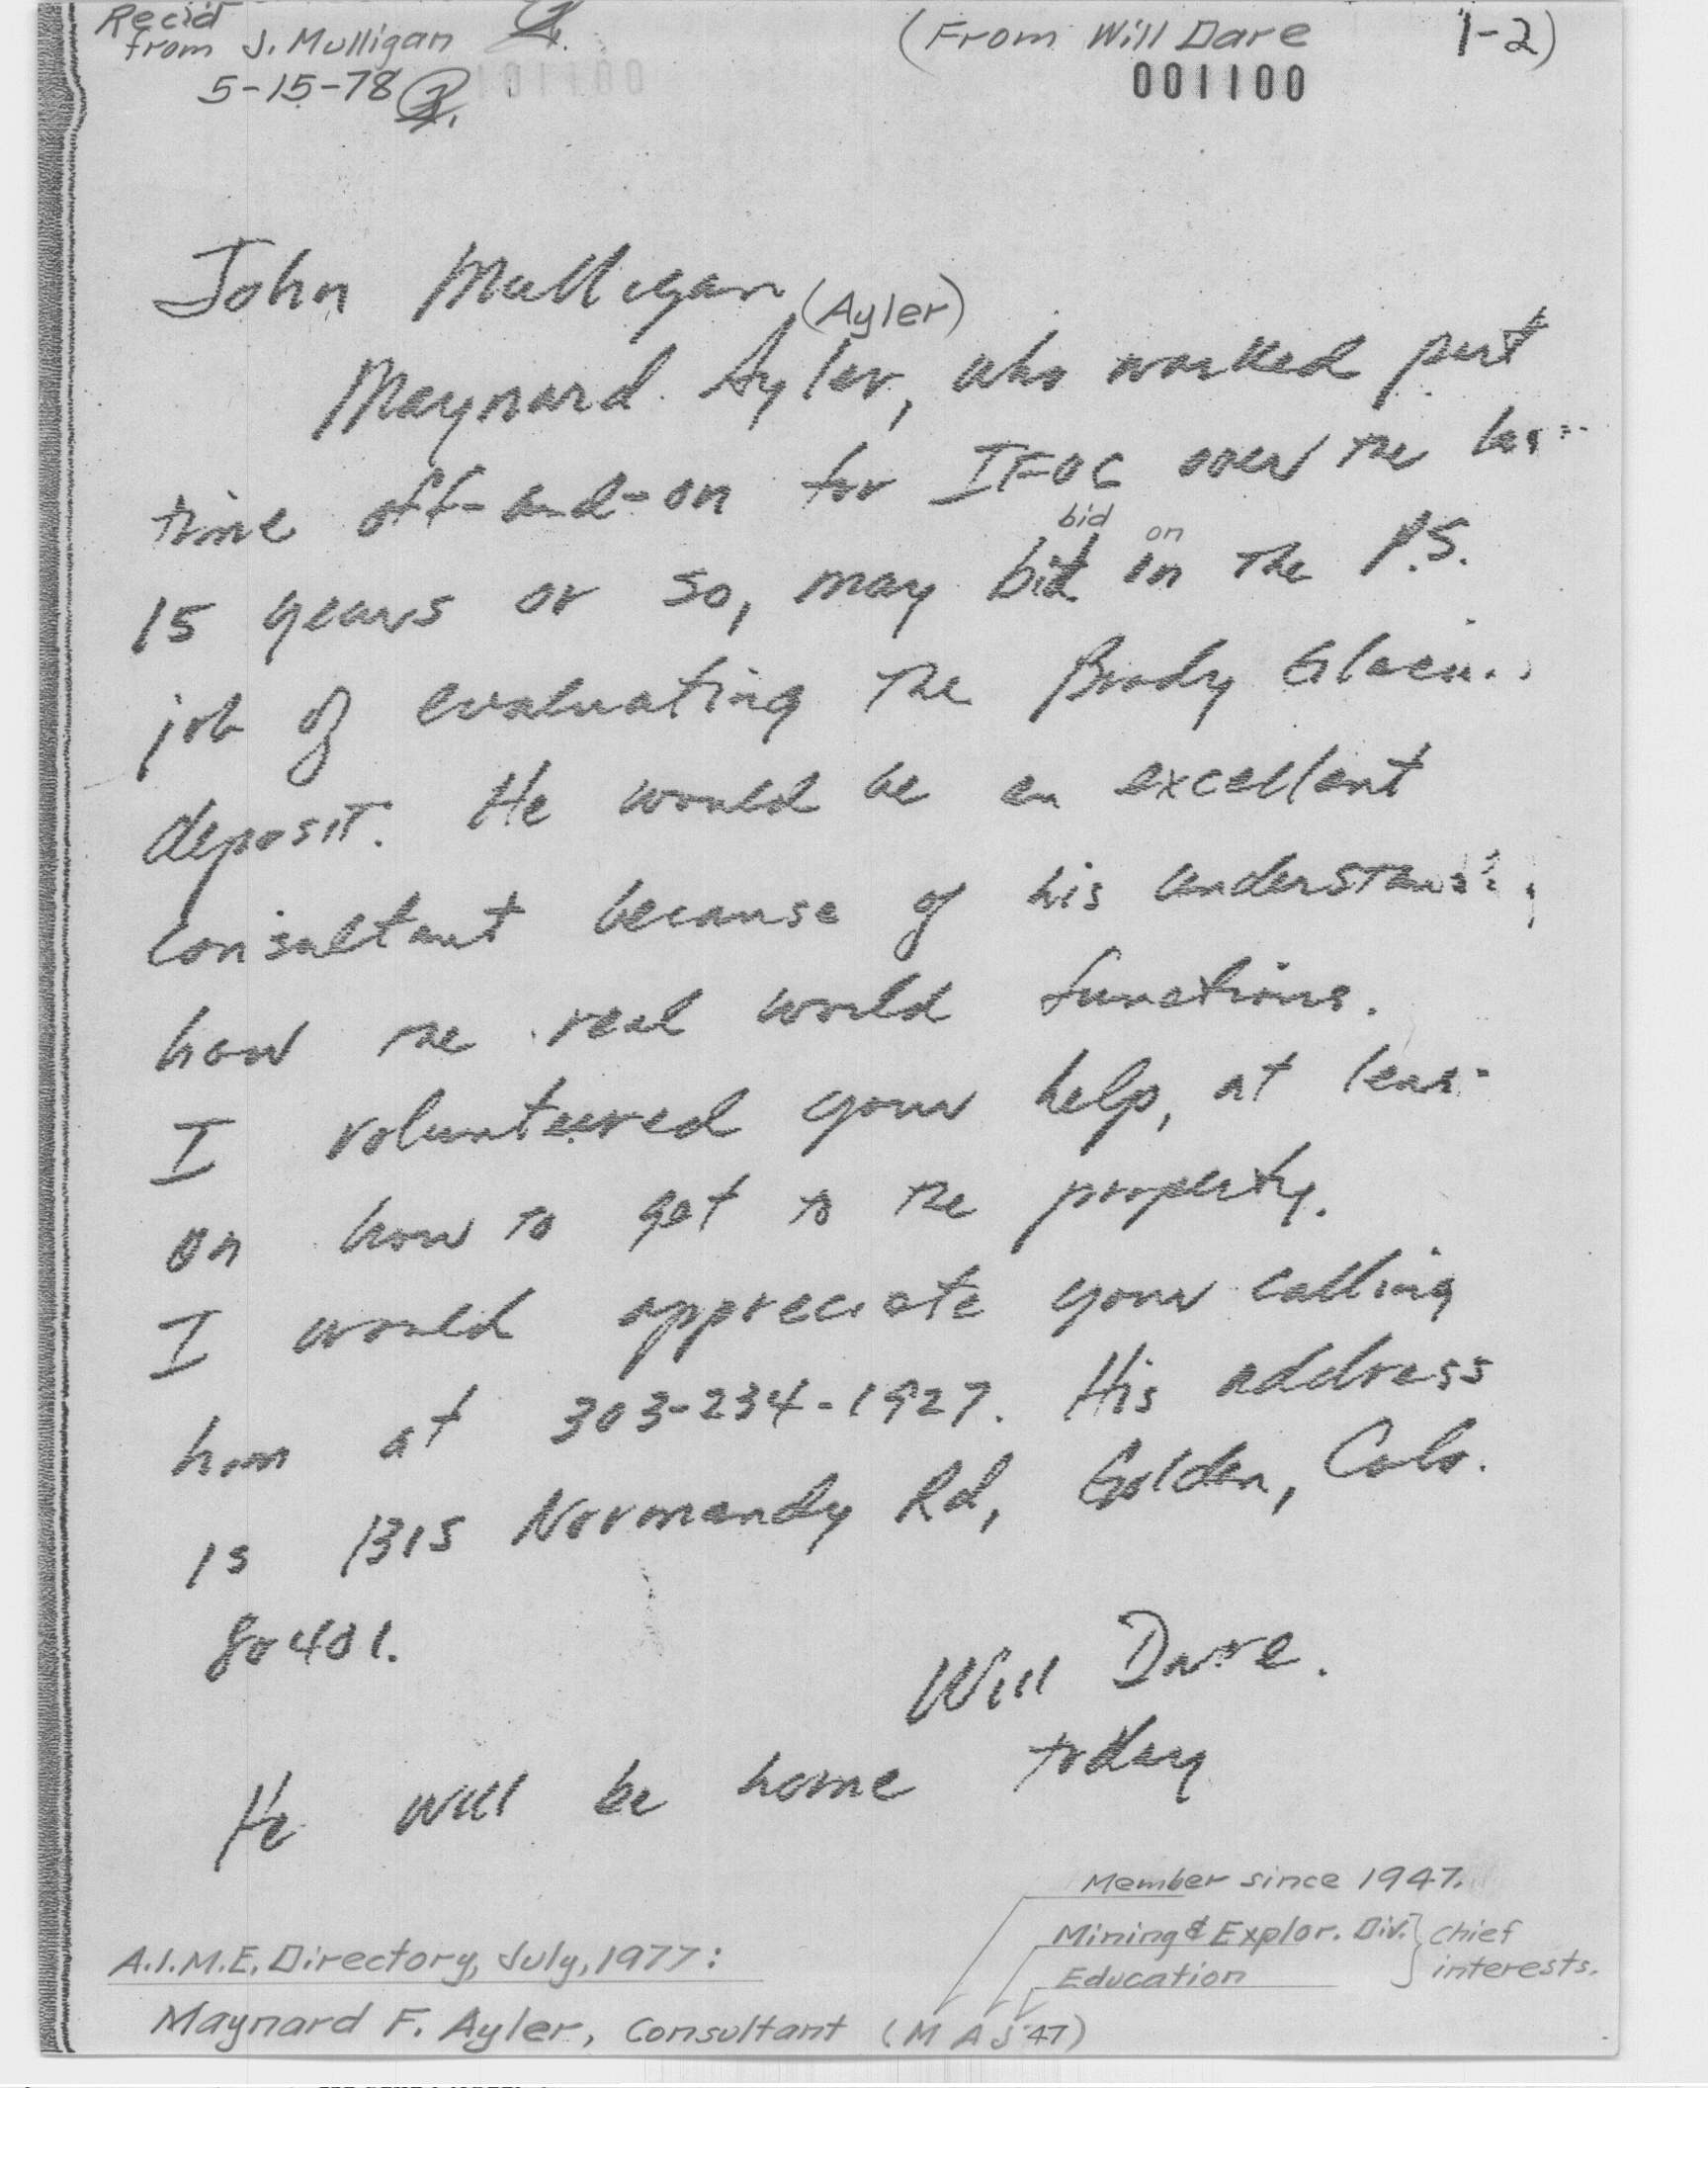 Rec'd
from J. Mulligan
5-15-78
(From Will Dare 1-2)
001100
John Mulligan
(Ayler)
Maynard Ayler, who worked part
time off-and-on for IFOC over the
15 years or so, may bid in the P.S.
bid on
job of evaluating the Brady
deposit. He would be an excellent
consultant because of his
how the real world functions.
I volunteered your help, at
on how to get to the property.
I would appreciate your calling
him at 303-234-1927. His address
is 1315 Normandy Rd, Golden, Colo.
80401.
Will Dare.
He will be home today
Member since 1947.
Mining & Explor. Div. } Chief
Education interests.
A.I.M.E. Directory, July, 1977:
Maynard F. Ayler, Consultant (M A J '47)